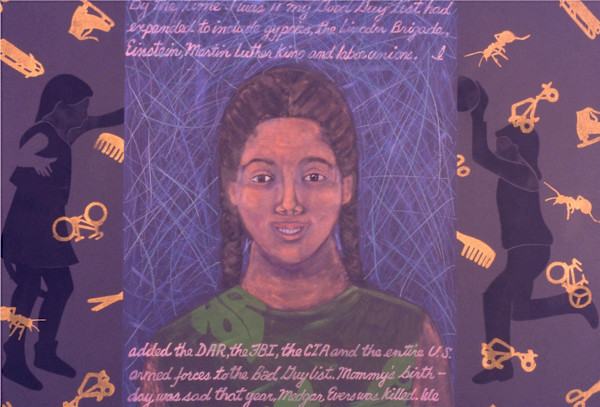 By the time I was 11 my Good Guy List had
expanded to include gypsies, the Lincoln Brigade,
Einstein, Martin Luther King and labor unions. I
added the DAR, the FBI, the CIA and the entire U.S.
armed forces to the Bad Guy list. Mommy's birth-
day was sad that year, Medgar Evers was killed. We